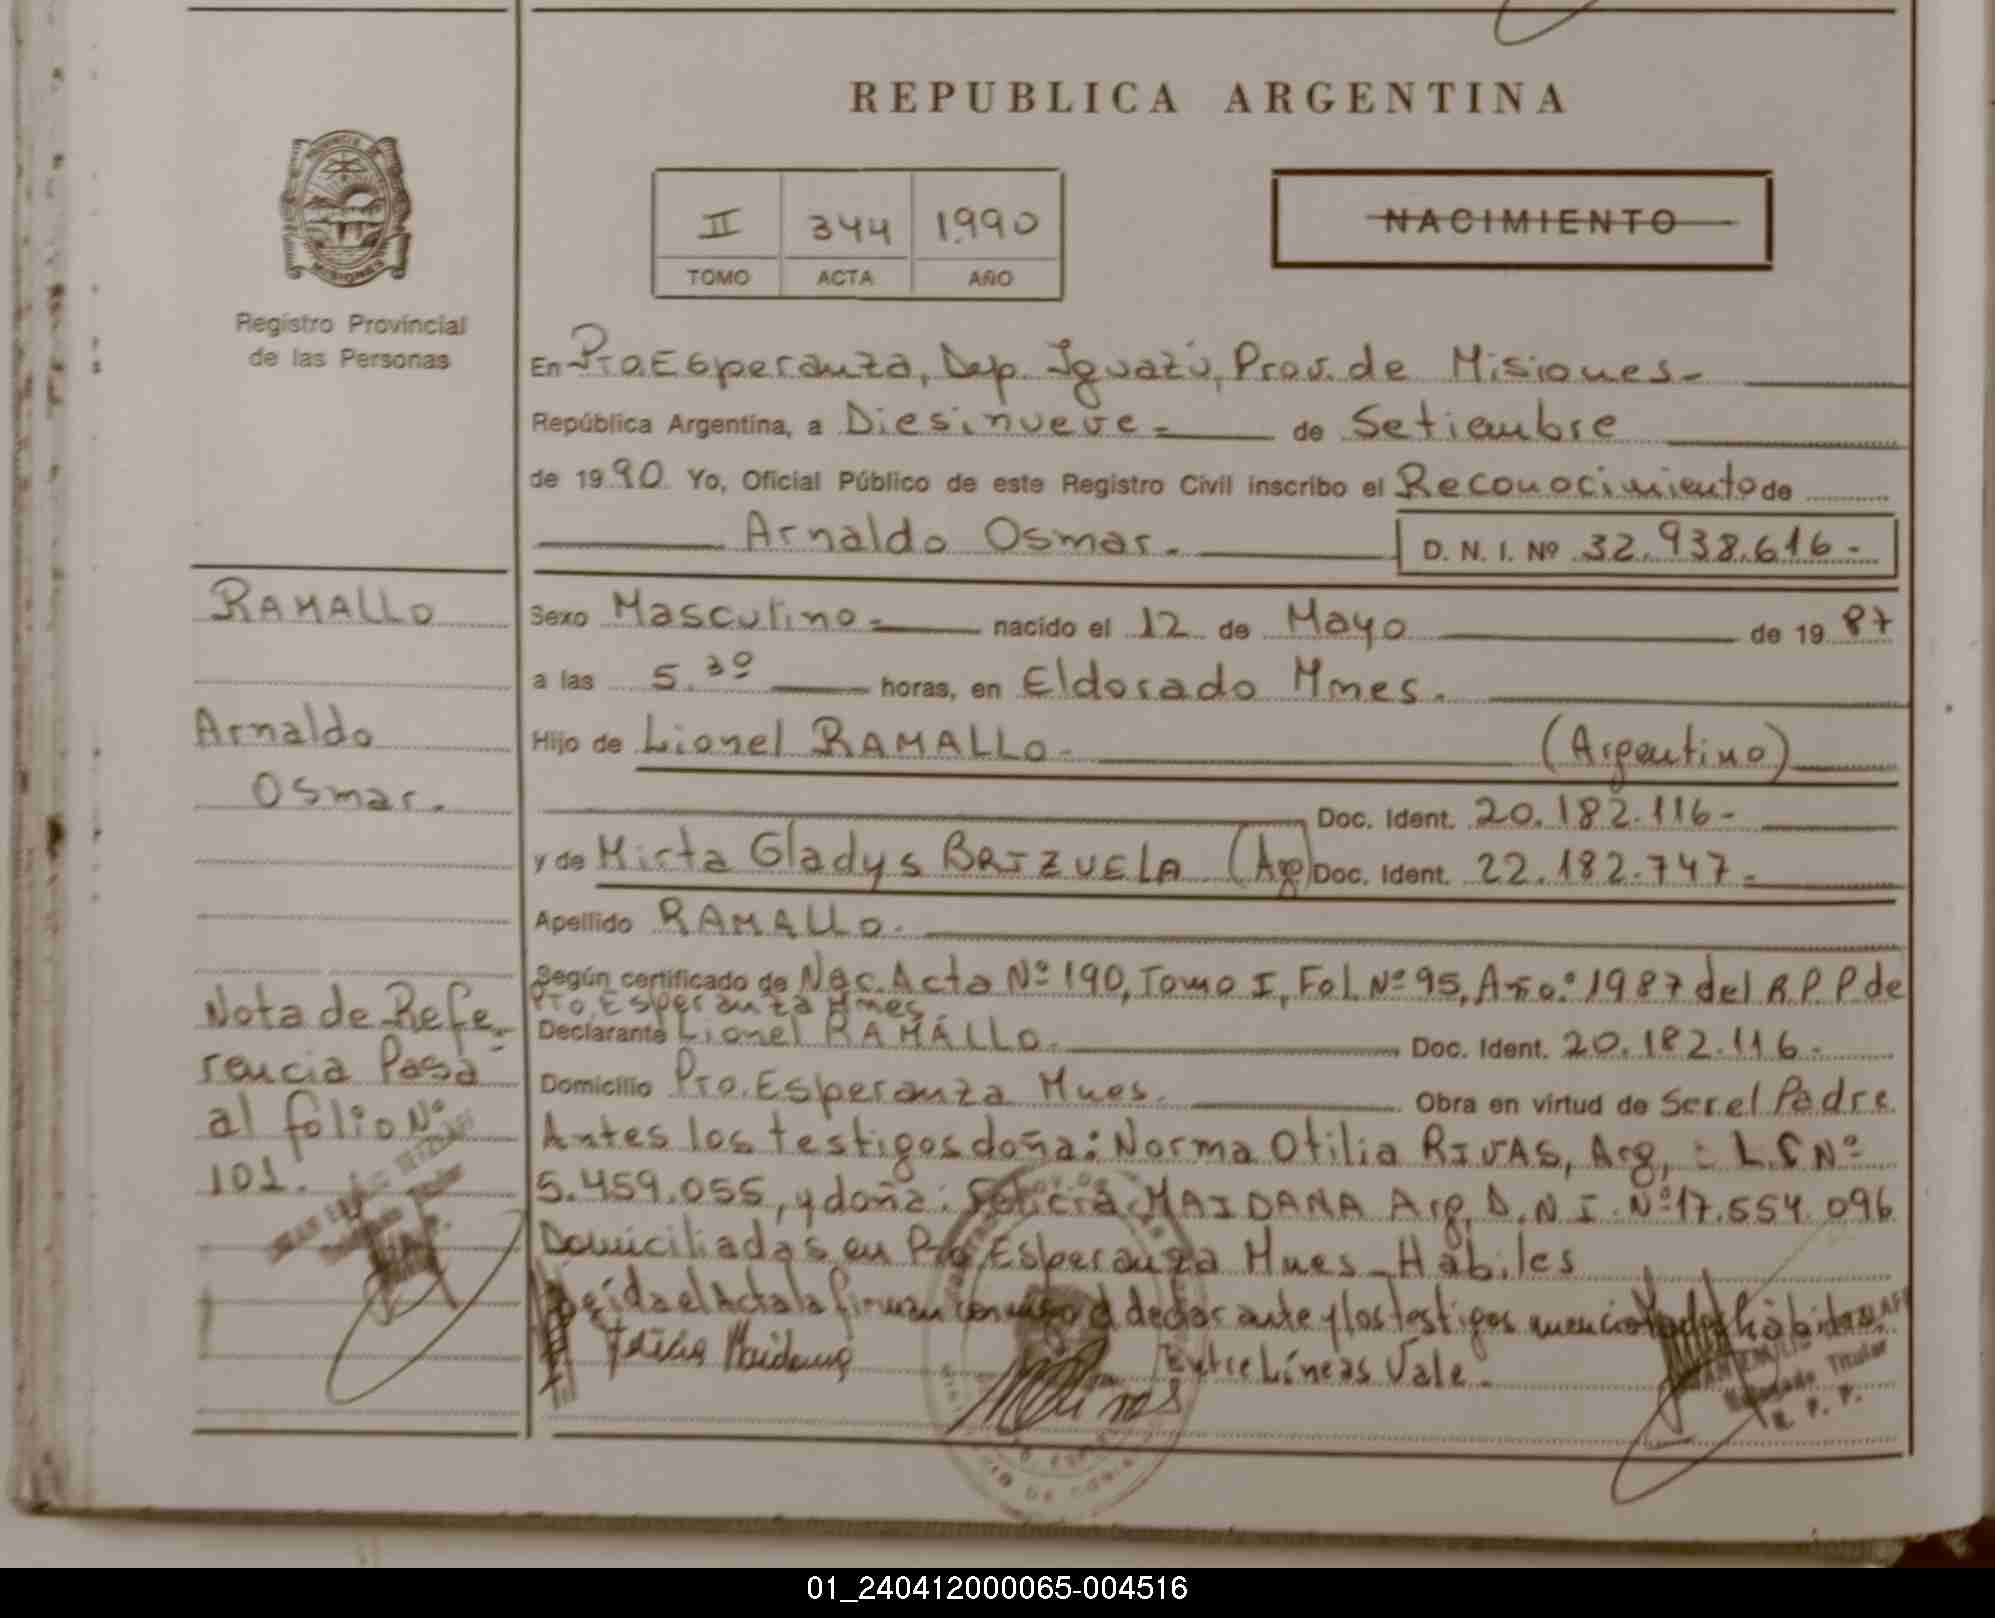 REPUBLICA ARGENTINA
PROVINCIA DE
MISIONES
Registro Provincial
de las Personas
II 344 1990
TOMO ACTA AÑO
NACIMIENTO
En Pto. Esperanza, Dep. Iguazú, Prov. de Misiones-
República Argentina, a Diesinueve = de Setiembre
de 1990 Yo, Oficial Público de este Registro Civil inscribo el Reconocimiento de
Arnaldo Osmar.
D. N. I. Nº 32.938.616-
Sexo Masculino = nacido el 12 de Mayo de 1987
a las 5.30 horas, en Eldorado Mnes.
Hijo de Lionel RAMALLO- (Argentino)
Doc. Ident. 20.182.116-
y de Mirta Gladys BRIZUELA (Arg) Doc. Ident. 22.182.747-
Apellido RAMALLO.
Según certificado de Nac. Acta Nº 190, Tomo I, Fol. Nº 95, Año: 1987 del R.P.P de
Pto. Esperanza Mnes
Declarante Lionel RAMALLO. Doc. Ident. 20.182.116-
Domicilio Pto. Esperanza Mnes. Obra en virtud de Ser el Padre
Antes los testigos doña: Norma Otilia RIVAS, Arg, = L.C Nº
5.459.055, y doña: Leticia MAIDANA Arg, D.N.I. Nº 17.554.096
Domiciliadas en Pto. Esperanza Mnes_Habiles
Leída el Acta la firman conmigo el declarante y los testigos
Entre Líneas Vale-
Titular
R. P. P.
RAMALLO
Arnaldo
Osmar.
Nota de Refe-
rencia Pasa
al folio Nº
101.
Titular
01_240412000065-004516